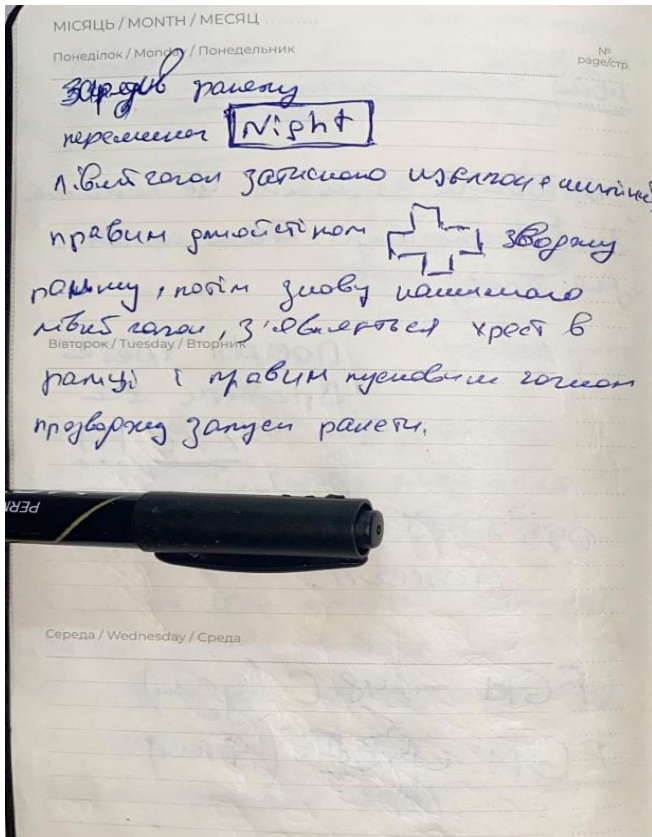 МІСЯЦЬ / MONTH / МЕСЯЦ
Понеділок / Monday / Понедельник
№
page/стр.
зарядив ракету
перемикач Night
лівий гогол затискаю
правим джойстіком зводжу
рамку, потім знову нажимаю
лівий гогол, з'являється хрест в
Вівторок / Tuesday / Вторник
рамці і правим пусковим гоглом
прозводжу запуск ракети.
PERM
Середа / Wednesday / Среда